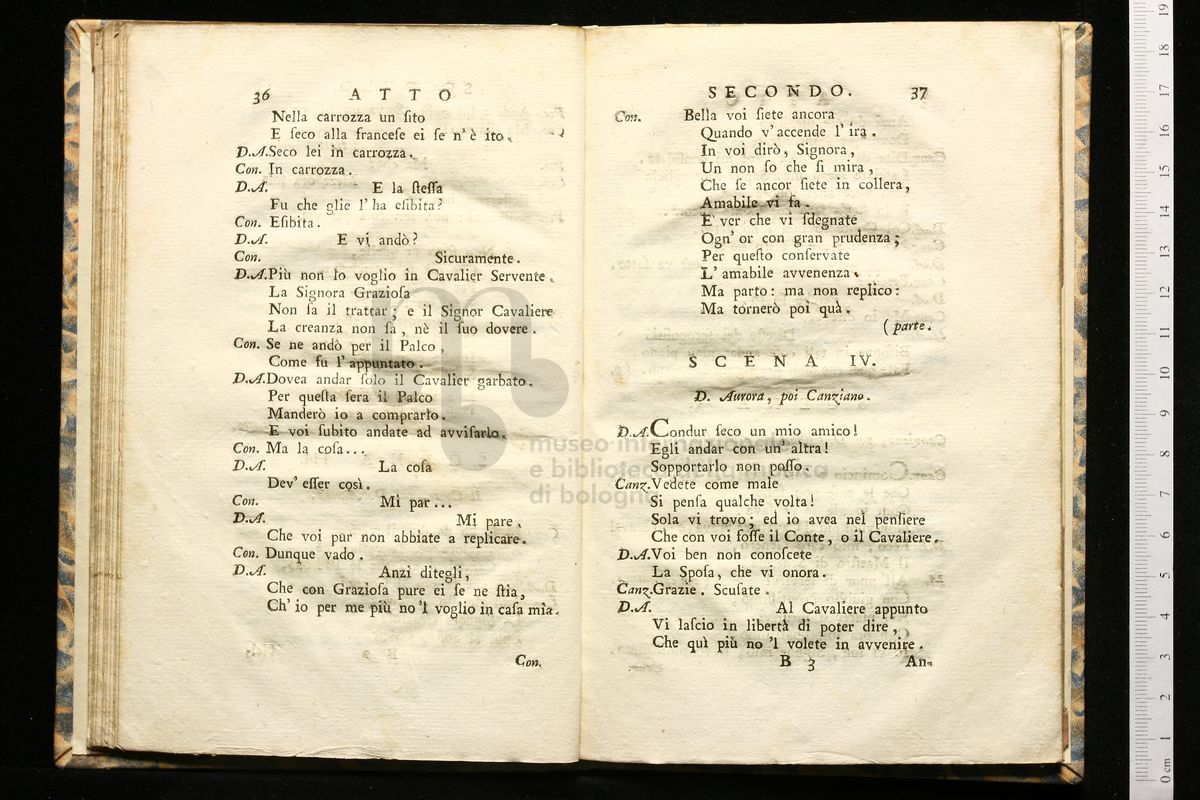 36 ATTO
Nella carrozza un ſito
E ſeco alla franceſe ei ſe n'è ito.
D.A. Seco lei in carrozza.
Con. In carrozza.
D.A. E la ſteſſa
Fu che glie l'ha eſibita?
Con. Eſibita.
D.A. E vi andò?
Con. Sicuramente.
D.A. Più non lo voglio in Cavalier Servente.
La Signora Grazioſa
Non ſa il trattar; e il Signor Cavaliere
La creanza non ſa, nè il ſuo dovere.
Con. Se ne andò per il Palco,
Come fu l'appuntato.
D.A. Dovea andar ſolo il Cavalier garbato.
Per queſta ſera il Palco
Manderò io a comprarlo.
E voi ſubito andate ad avviſarlo.
Con. Ma la coſa...
D.A. La coſa
Dev' eſſer così.
Con. Mi par...
D.A. Mi pare.
Che voi pur non abbiate a replicare.
Con. Dunque vado.
D.A. Anzi ditegli,
Che con Grazioſa pure ei ſe ne ſtia,
Ch' io per me più no 'l voglio in caſa mia.
Con.
SECONDO. 37
Con. Bella voi ſiete ancora
Quando v'accende l'ira.
In voi dirò, Signora,
Un non ſo che ſi mira,
Che ſe ancor ſiete in collera,
Amabile vi fa.
E' ver che vi ſdegnate
Ogn' or con gran prudenza;
Per queſto conſervate
L'amabile avvenenza.
Ma parto: ma non replico:
Ma tornerò poi quà.
(parte.
SCENA IV.
D. Aurora, poi Canziano.
D.A. Condur ſeco un mio amico!
Egli andar con un' altra!
Sopportarlo non poſſo.
Canz. Vedete come male
Si penſa qualche volta!
Sola vi trovo; ed io avea nel penſiere
Che con voi foſſe il Conte, o il Cavaliere.
D.A. Voi ben non conoſcete
La Spoſa, che vi onora.
Canz. Grazie. Scuſate.
D.A. Al Cavaliere appunto
Vi laſcio in libertà di poter dire,
Che quì più no 'l volete in avvenire.
B 3 An-
museo internazionale
e biblioteca della musica
di bologna